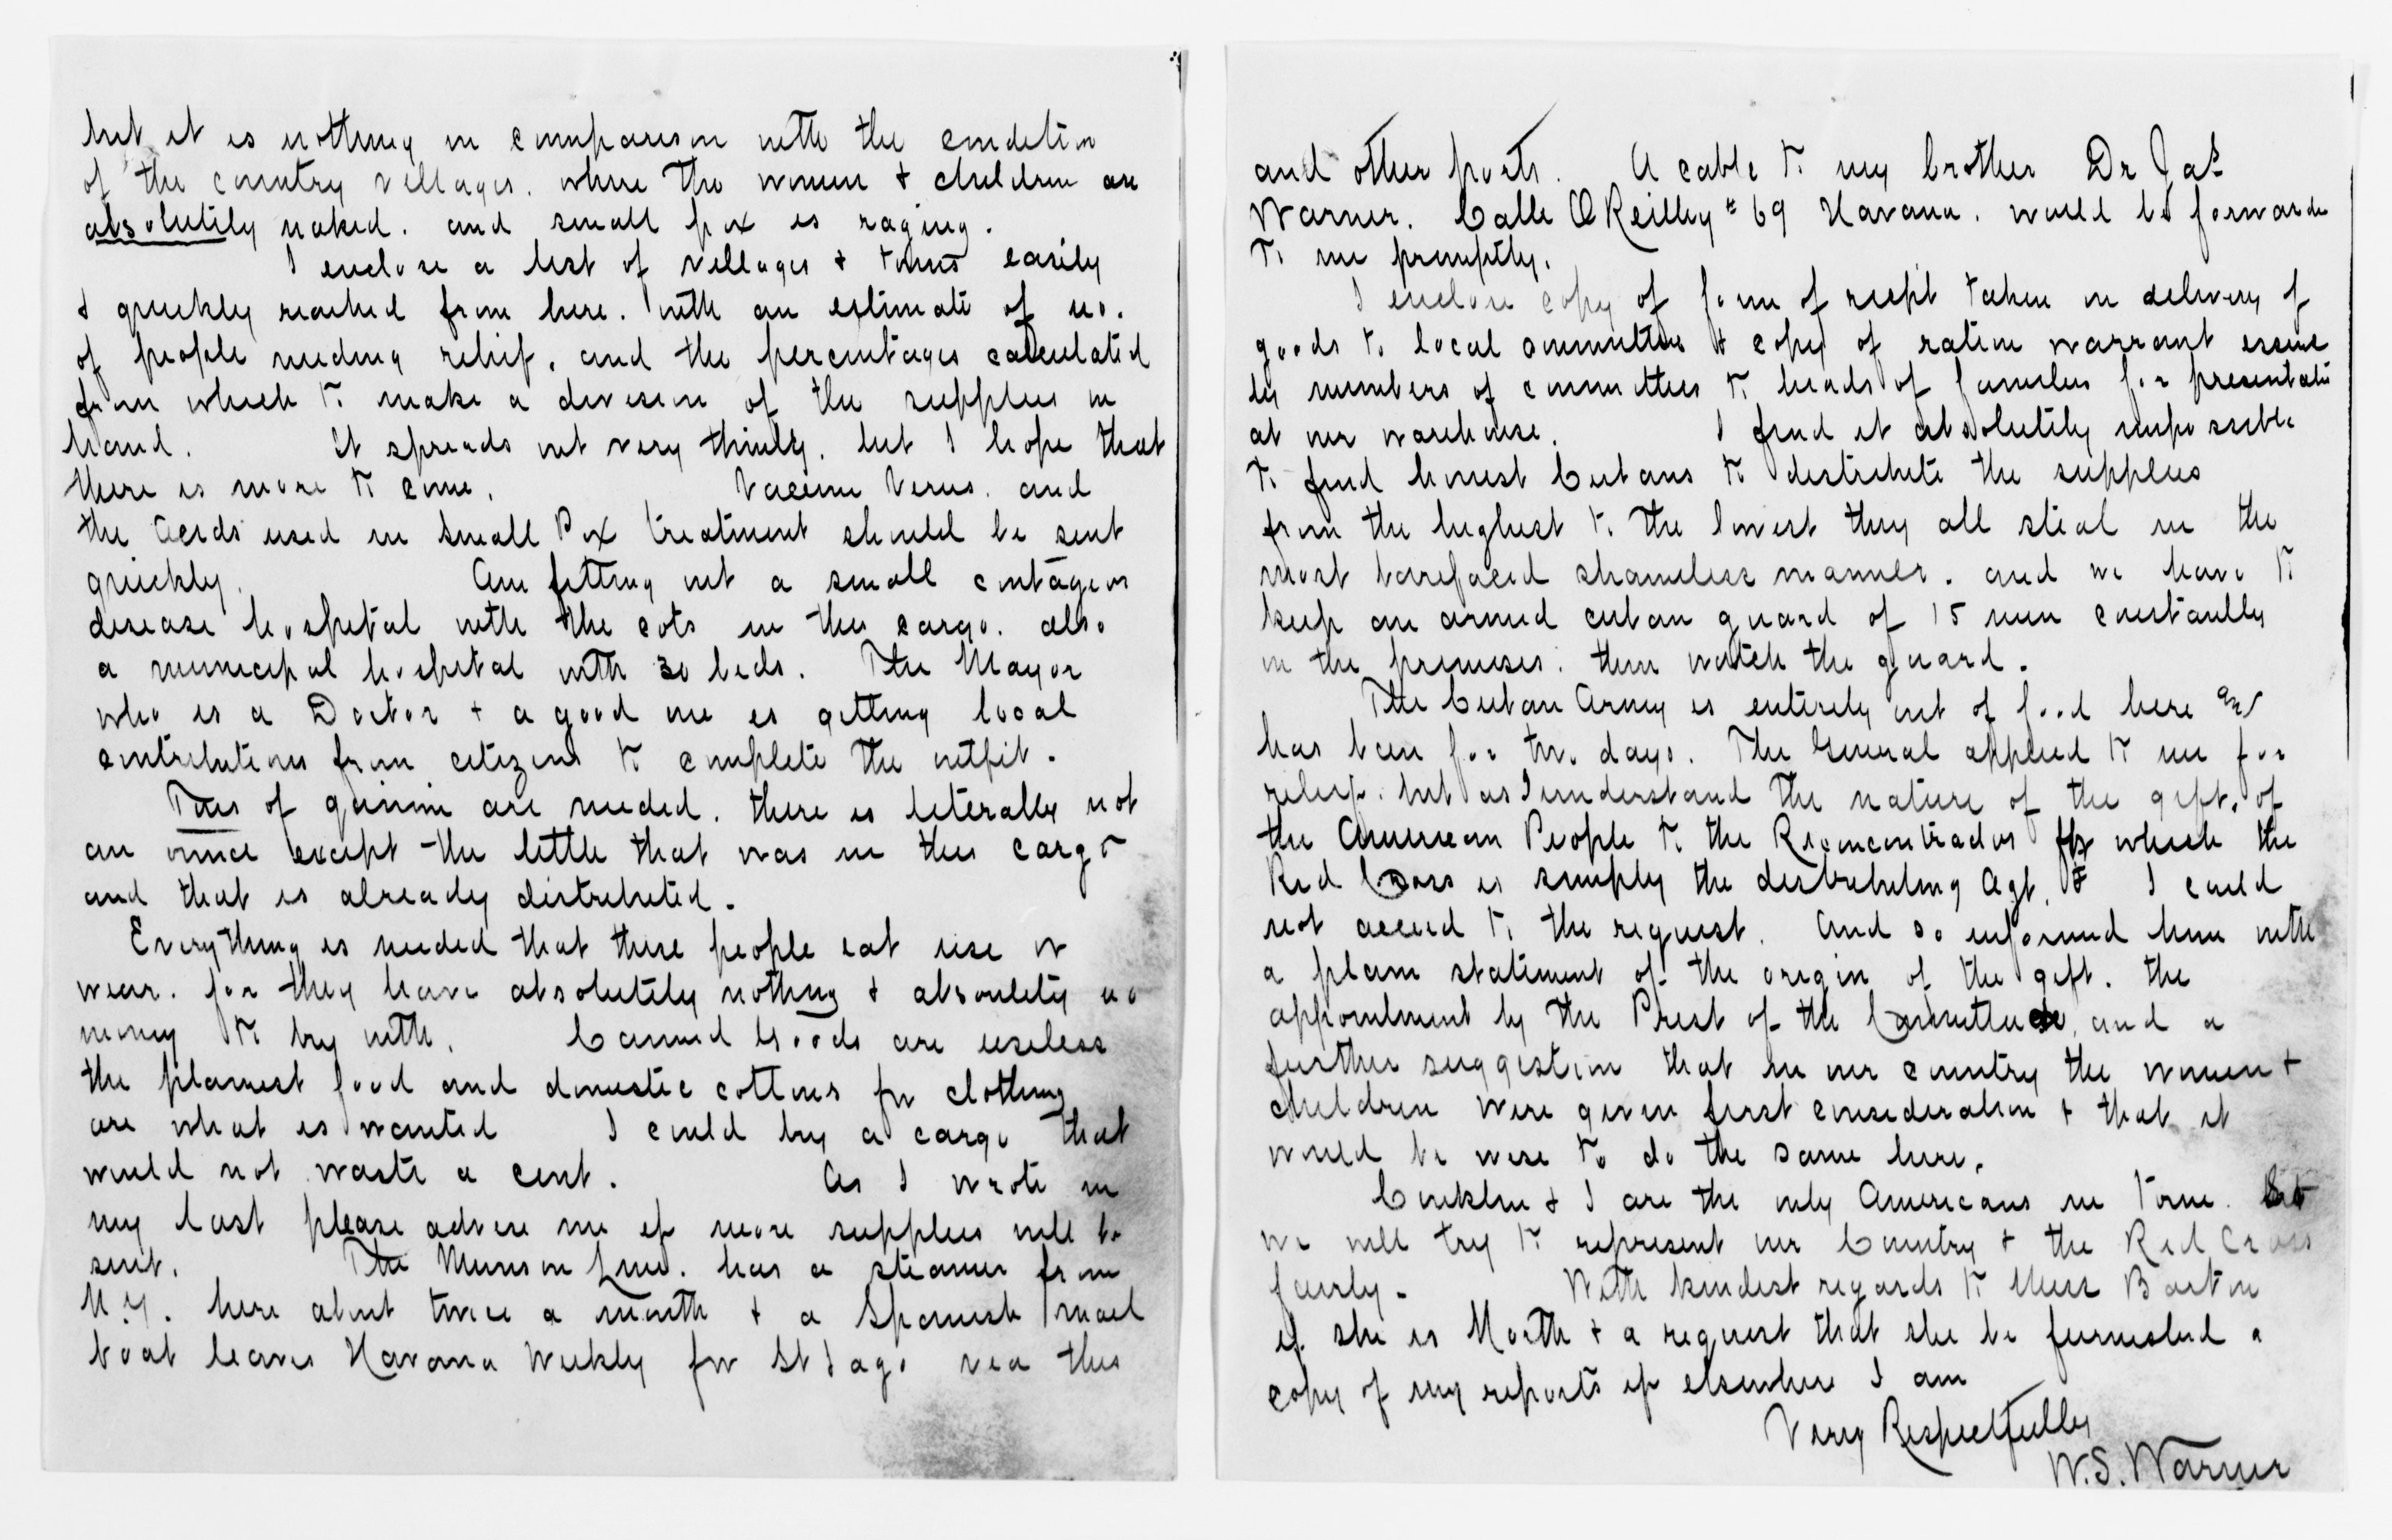 but it is nothing in comparison with the condition
of the country villages. where the women + children are
absolutily naked. and small pox is raging.
I enclose a list of villages + towns easily
+ quickly reached from here. with an estimate of no.
of people needing relief, and the percentages calculated
from which to make a division of the supplies on
hand. It spreads out very thinly, but I hope that
there is more to come. Vaccine Virus. and
the Acids used in Small Pox treatment should be sent
quickly. Am fitting out a small contagion
disease hospital with the cots in this cargo. also
a municipal hospital with 30 beds. The Mayor
who is a Doctor + a good one is getting local
contributions from citizens to complete the outfit.
Tons of quinine are needed. there is literally not
an ounce except the little that was in this cargo
and that is already distributed.
Everything is needed that these people eat use or
wear. for they have absolutely nothing + absoulety no
money to buy with. Canned Goods are useless
the plainest food and domestic cottons for clothing
are what is wanted I could buy a cargo that
would not waste a cent. As I wrote in
my last please advise me if more supplies will be
sent. The Munson Line. has a steamer from
N.Y. here about twice a month + a Spanish mail
boat leaves Havana Weekly for St Iago via this
and other ports. A cable to my brother Dr Jas
Warner. Calle O Reilley # 69 Havana. would be forwarde
to me promptly.
I enclose copy of form of recpt taken on delivery of
goods to local committees & copy of ration warrant issue
by members of committees to heads of families for presentati
at our warehouse. I find it absolutily impossible
to find honest Cubans to distribute the supplies
from the highest to the lowest they all steal in the
most barefaced shameless manner. and we have to
keep an armed cuban guard of 15 men constantly
on the premises. then watch the guard.
The Cuban Army is entirely out of food here and
has been for two days. The General applied to me for
relief. but as I understand the nature of the gift. of
the American People to the Reconcentrados for which the
Red Cross is simply the distributing Agt. I could
not acceed to the request. And so informed him with
a plain statement of the origin of the gift. the
appointment by the Prest of the Committee, and a
further suggestion that in our country the women +
children were given first consideration + that it
would be wise to do the same here.
Conklin + I are the only Americans in town. but
we will try to represent our Country + the Red Cross
fairly. With kindest regards to Miss Barton
if she is North + a request that she be furnished a
copy of my reports if elsewhere I am
Very Respectfully
W.S. Warner